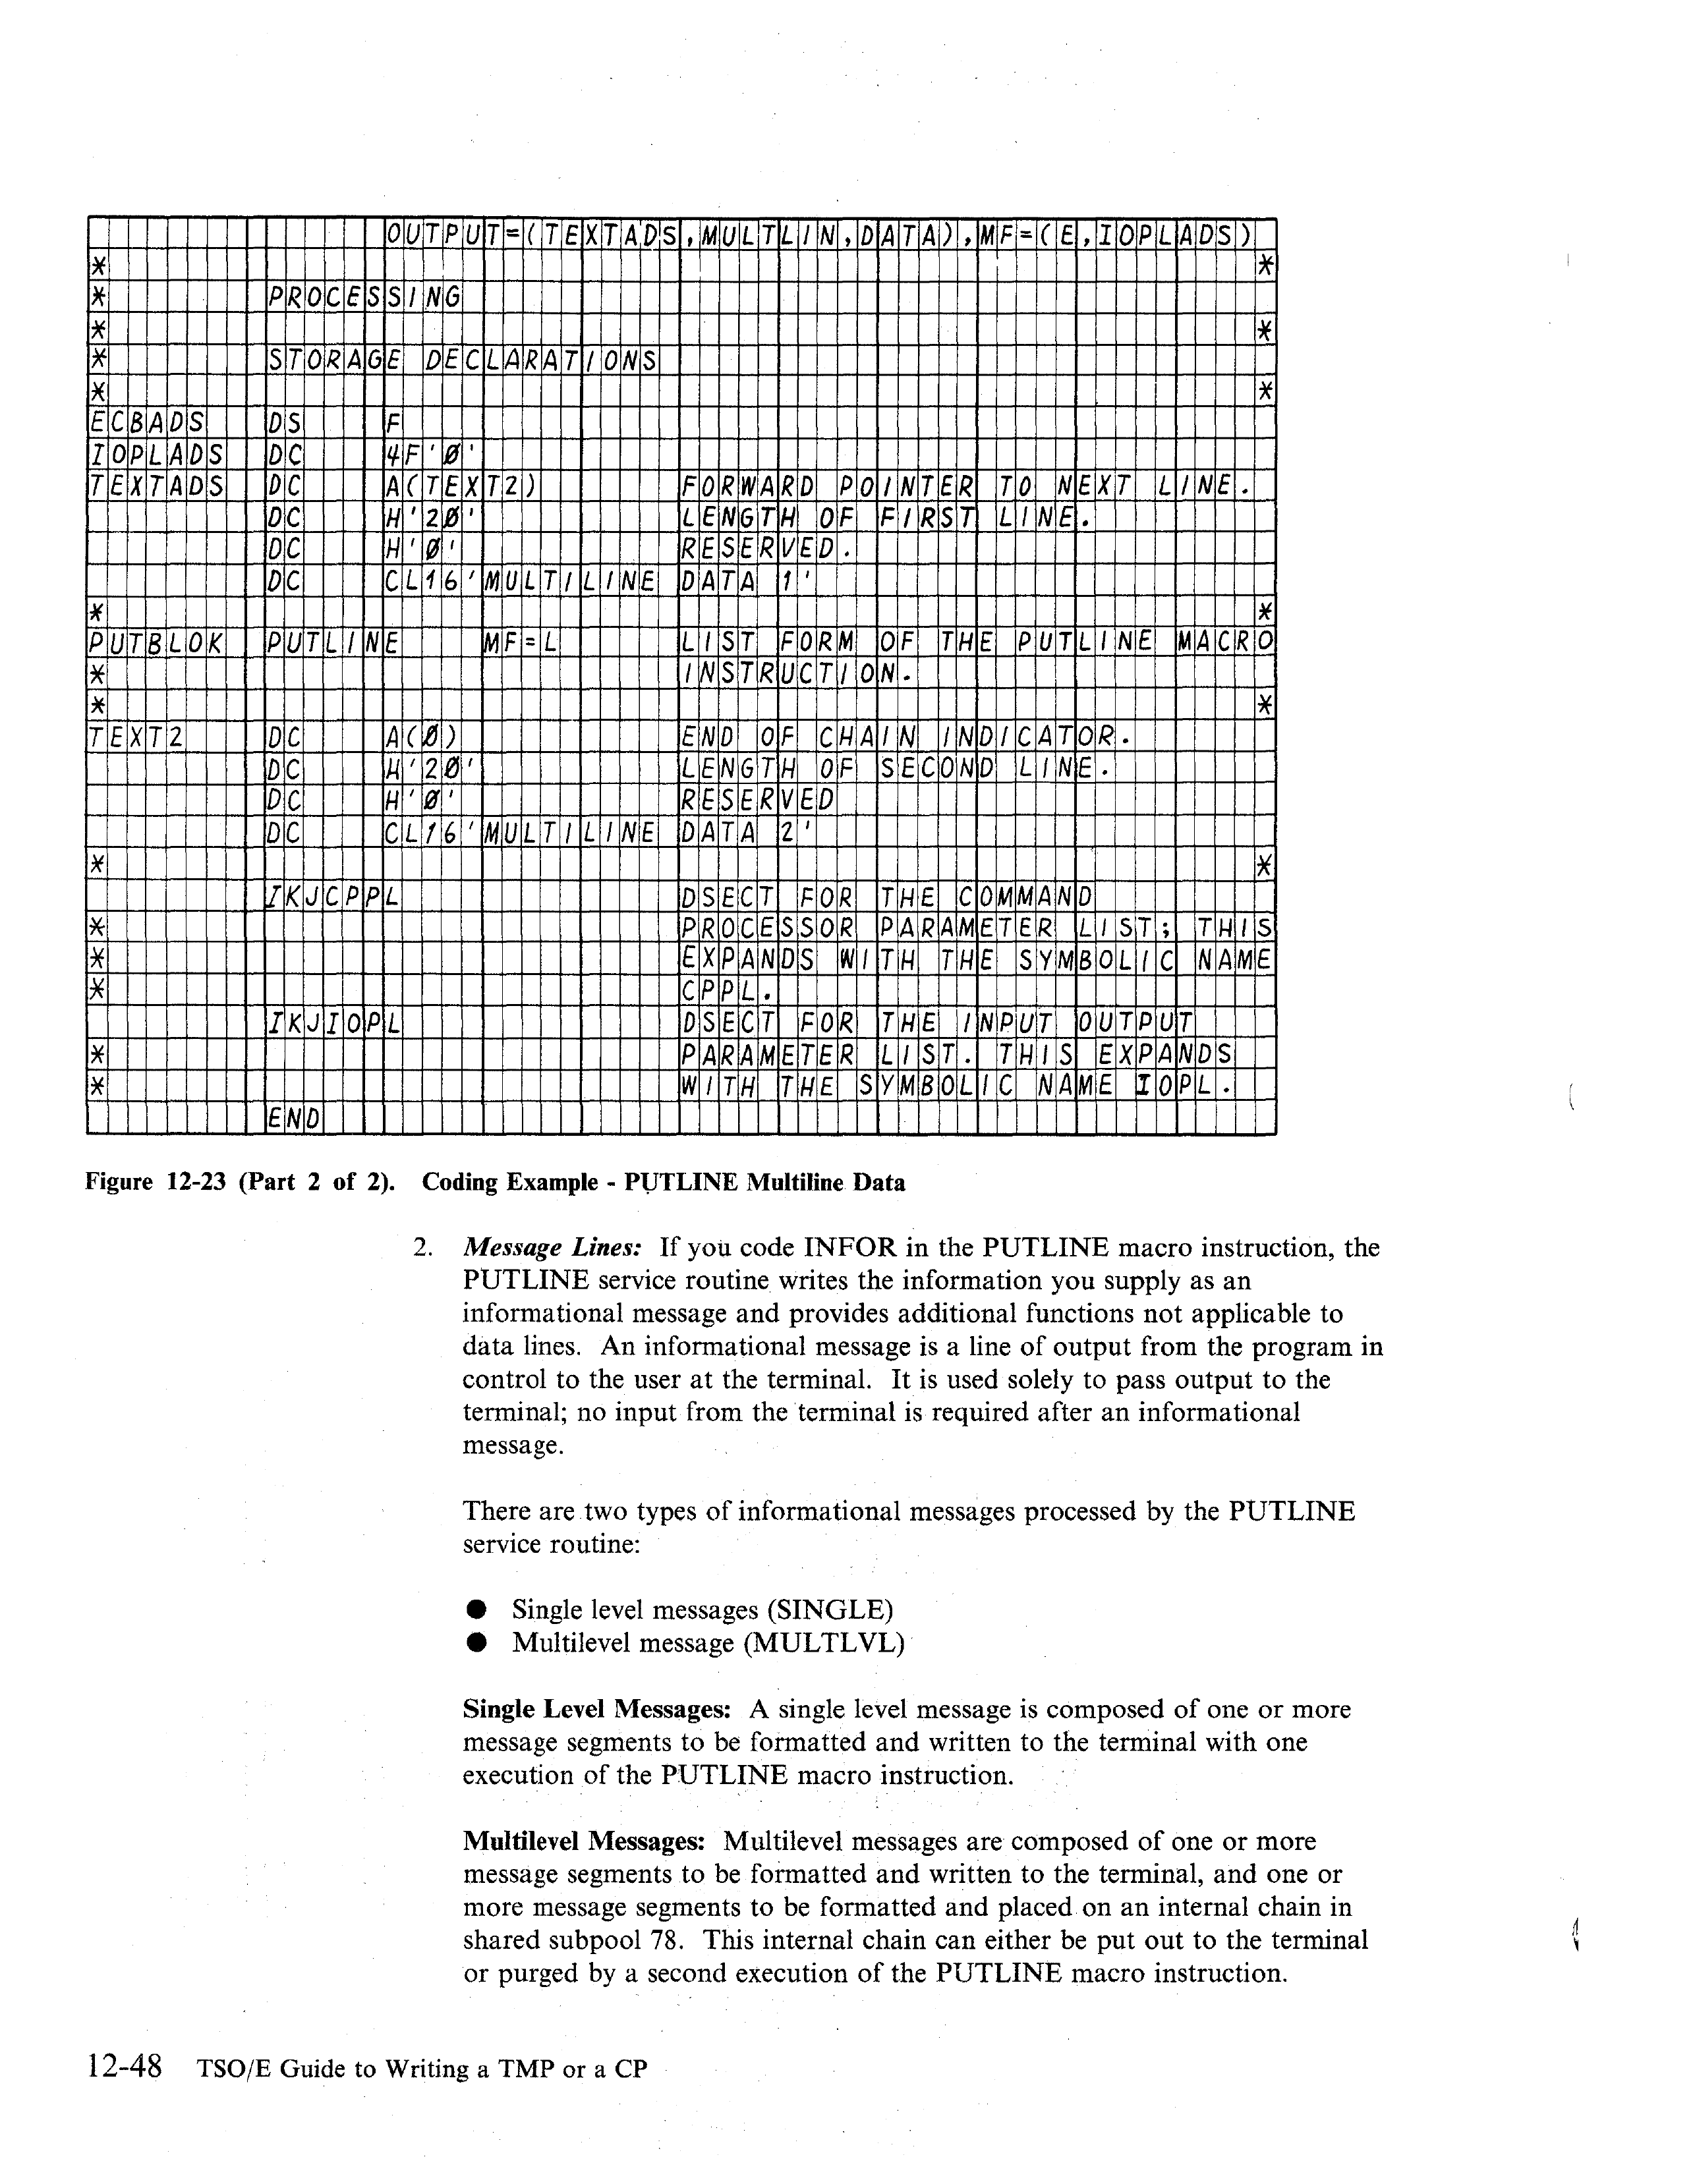 OUTPUT=(TEXTADS,MULTLIN,DATA),MF=(E,IOPLADS)
*                                                          *
*        PROCESSING
*                                                          *
*        STORAGE DECLARATIONS
*                                                          *
ECBADS   DS    F
IOPLADS  DC    4F'0'
TEXTADS  DC    A(TEXT2)       FORWARD POINTER TO NEXT LINE.
         DC    H'20'          LENGTH OF FIRST LINE.
         DC    H'0'           RESERVED.
         DC    CL16'MULTILINE DATA 1'
*                                                          *
PUTBLOK  PUTLINE    MF=L      LIST FORM OF THE PUTLINE MACRO
*                             INSTRUCTION.
*                                                          *
TEXT2    DC    A(0)           END OF CHAIN INDICATOR.
         DC    H'20'          LENGTH OF SECOND LINE.
         DC    H'0'           RESERVED
         DC    CL16'MULTILINE DATA 2'
*                                                          *
         IKJCPPL              DSECT FOR THE COMMAND
*                             PROCESSOR PARAMETER LIST; THIS
*                             EXPANDS WITH THE SYMBOLIC NAME
*                             CPPL.
         IKJIOPL              DSECT FOR THE INPUT OUTPUT
*                             PARAMETER LIST. THIS EXPANDS
*                             WITH THE SYMBOLIC NAME IOPL.
         END
Figure 12-23 (Part 2 of 2). Coding Example - PUTLINE Multiline Data
2. Message Lines: If you code INFOR in the PUTLINE macro instruction, the
PUTLINE service routine writes the information you supply as an
informational message and provides additional functions not applicable to
data lines. An informational message is a line of output from the program in
control to the user at the terminal. It is used solely to pass output to the
terminal; no input from the terminal is required after an informational
message.
There are two types of informational messages processed by the PUTLINE
service routine:
● Single level messages (SINGLE)
● Multilevel message (MULTLVL)
Single Level Messages: A single level message is composed of one or more
message segments to be formatted and written to the terminal with one
execution of the PUTLINE macro instruction.
Multilevel Messages: Multilevel messages are composed of one or more
message segments to be formatted and written to the terminal, and one or
more message segments to be formatted and placed on an internal chain in
shared subpool 78. This internal chain can either be put out to the terminal
or purged by a second execution of the PUTLINE macro instruction.
12-48 TSO/E Guide to Writing a TMP or a CP